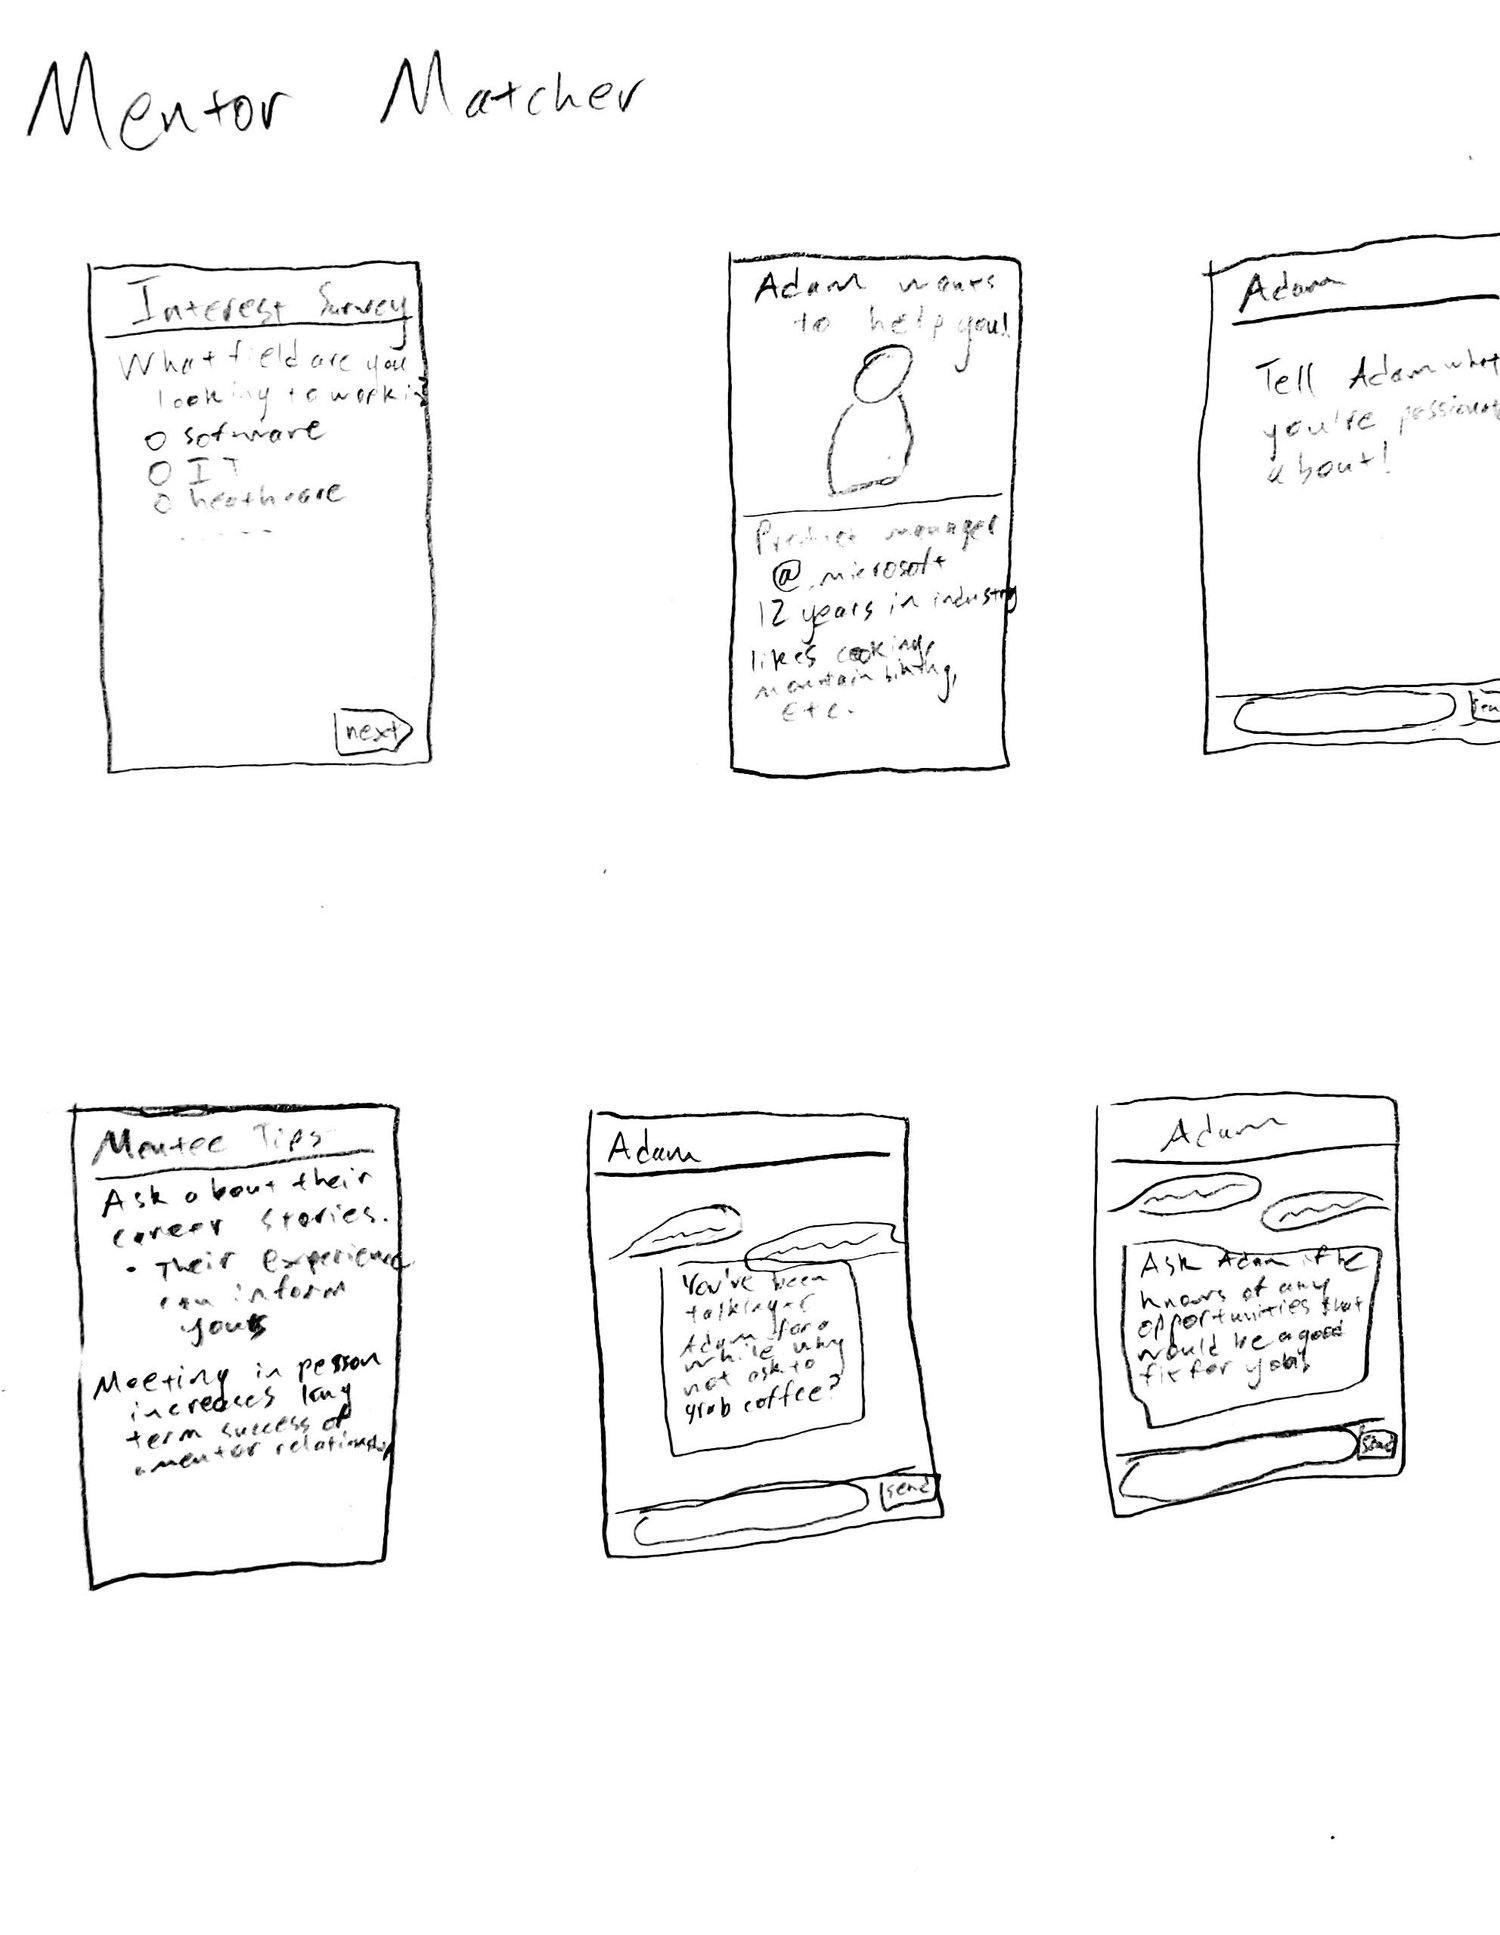 Mentor Matcher
Interest Survey
What field are you
looking to work in?
software
IT
heathcare
.....
next
Adam wants
to help you!
Product manager
@ microsoft
12 years in industry
likes cooking,
mountain biking,
etc.
Adam
Tell Adam what
you're passionat
about!
sen
Mentee Tips
Ask about their
career stories.
• Their experience
can inform
yours
Meeting in person
increases long
term success of
a mentor relationship
Adam
You've been
talking
Adam for a
while why
not ask to
grab coffee?
send
Adam
Ask Adam if he
knows of any
opportunities that
would be a good
fit for you
send